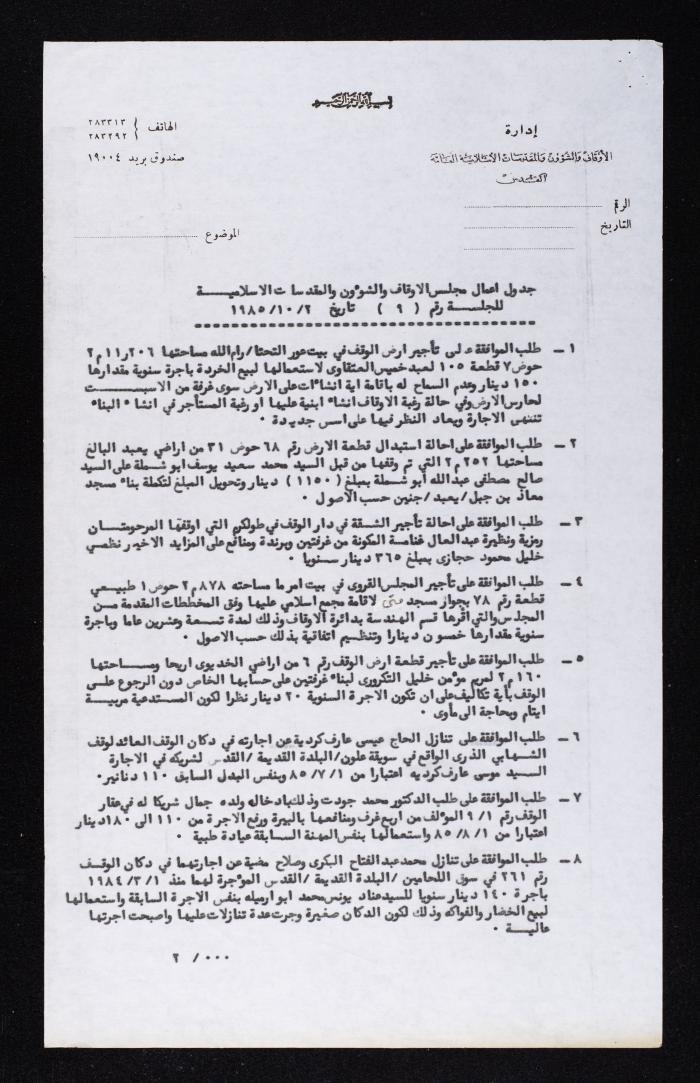 بسم الله الرحمن الرحيم
إدارة
الأوقاف والشؤون والمقدسات الإسلامية العامة
القدس
الهاتف { ٢٨٣٣١٣
٢٨٣٢٩٢
صندوق بريد ١٩٠٠٤
الرقم
التاريخ
الموضوع
جدول اعمال مجلس الاوقاف والشوءون والمقدسات الاسلامية
للجلسة رقم ( ٩ ) تاريخ ١٩٨٥/١٠/٢
١ – طلب الموافقة على تأجير ارض الوقف في بيت عور التحتا/رام الله مساحتها ٢٠٦ر١١م٢
حوض ٧ قطعة ١٠٥ لعبد خميس العتقاوى لاستعمالها لبيع الخردة باجرة سنوية مقدارها
١٥٠ دينار وعدم السماح له باقامة اية انشاءات على الارض سوى غرفة من الاسبست
لحارس الارض وفي حالة رغبة الاوقاف انشاء ابنية عليها او رغبة المستأجر في انشاء البناء
تنتهي الاجارة ويعاد النظر فيها على اسس جديدة .
٢ – طلب الموافقة على احالة استبدال قطعة الارض رقم ٦٨ حوض ٣١ من اراضي يعبد البالغ
مساحتها ٢٥٢ م٢ التي تم وقفها من قبل السيد محمد سعيد يوسف ابو شملة على السيد
صالح مصطفى عبد الله أبو شملة بمبلغ (١١٥٠) دينار وتحويل المبلغ لتكملة بناء مسجد
معاذ بن جبل/يعبد/جنين حسب الاصول .
٣ – طلب الموافقة على احالة تأجير الشقة في دار الوقف في طولكرم التي اوقفها المرحومتان
رمزية ونظيرة عبد العال غناصة المكونة من غرفتين وبرندة ومنافع على المزايد الاخير نظمي
خليل محمود حجازى بمبلغ ٣٦٥ دينار سنويا .
٤ – طلب الموافقة على تأجير المجلس القروى في بيت امر ما مساحته ٨٧٨م٢ حوض ١ طبيعي
قطعة رقم ٧٨ بجوار مسجد متى لاقامة مجمع اسلامي عليها وفق المخططات المقدمة من
المجلس والتي اقرها قسم الهندسة بدائرة الاوقاف وذلك لمدة تسعة وعشرين عاما وباجرة
سنوية مقدارها خمسون دينارا وتنظيم اتفاقية بذلك حسب الاصول .
٥ – طلب الموافقة على تأجير قطعة ارض الوقف رقم ٦ من اراضي الخديوى اريحا ومساحتها
١٦٠م٢ لمريم موءمن خليل التكرورى لبناء غرفتين على حسابها الخاص دون الرجوع على
الوقف بأية تكاليف على ان تكون الاجرة السنوية ٢٠ دينار نظرا لكون المستدعية مربية
ايتام وبحاجة الى مأوى .
٦ – طلب الموافقة على تنازل الحاج عيسى عارف كردية عن اجارته في دكان الوقف العائد لوقف
الشهابي الذرى الواقع في سويقة علون/البلدة القديمة/القدس لشريكه في الاجارة
السيد موسى عارف كرديه اعتبارا من ٨٥/٧/١ وبنفس البدل السابق ١١٠ دنانير.
٧ – طلب الموافقة على طلب الدكتور محمد جودت وذلك بادخاله ولده جمال شريكا له في عقار
الوقف رقم ٩/١ الموءلف من اربع غرف ومنافعها بالبيرة ورفع الاجرة من ١١٠ الى ١٨٠دينار
اعتبارا من ٨٥/٨/١ واستعمالها بنفس المهنة السابقة عيادة طبية .
٨ – طلب الموافقة على تنازل محمد عبد الفتاح البكرى وصلاح مضية عن اجارتهما في دكان الوقف
رقم ٢٦١ في سوق اللحامين/البلدة القديمة/القدس الموءجرة لهما منذ ١٩٨٤/٣/١
باجرة ١٤٠ دينار سنويا للسيد عناد يونس محمد ابو ارميله بنفس الاجرة السابقة واستعمالها
لبيع الخضار والفواكه وذلك لكون الدكان صغيرة وجرت عدة تنازلات عليها واصبحت اجرتها
عالية .
٢ / ٠٠٠